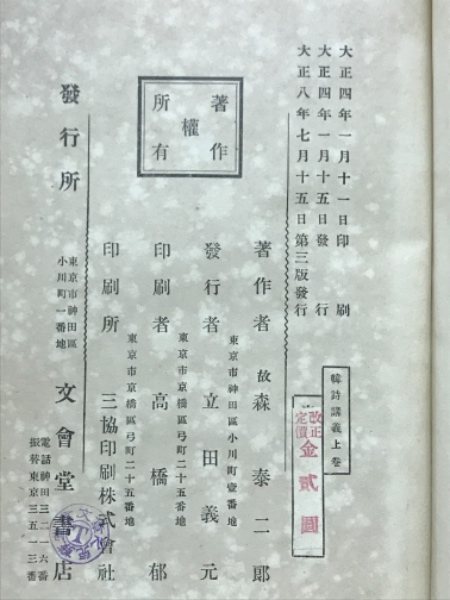 大正四年一月十一日印刷
大正四年一月十五日發行
大正八年七月十五日第三版發行
韓詩講義上卷
改正定價金貳圓
著作權所有
著作者 故 森泰二郞
東京市神田區小川町壹番地
發行者 立田義元
東京市京橋區弓町二十五番地
印刷者 高橋郁
東京市京橋區弓町二十五番地
印刷所 三協印刷株式會社
發行所 東京市神田區小川町一番地 文會堂書店
電話神田三二一六番
振替東京三五一三番